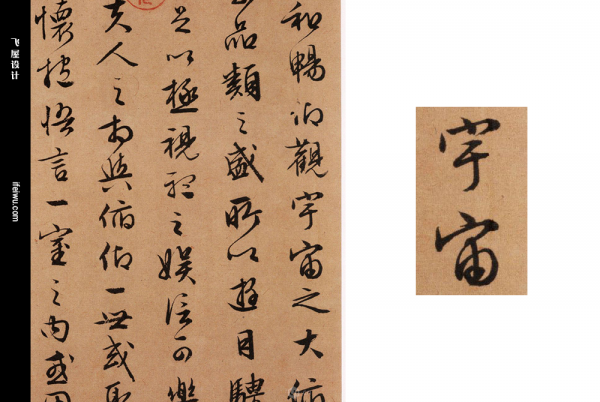 和暢仰觀宇宙之大俯
品類之盛所以遊目騁
足以極視聽之娛信可樂
夫人之相與俯仰一世或取
懷抱悟言一室之內或因
飞屋设计
ifeiwu.com
宇宙